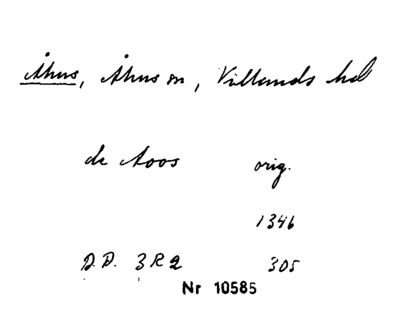 Åhus, Åhus sn, Villands hd
de Aoos orig.
1346
D.D. 3 R 2 305
Nr 10585